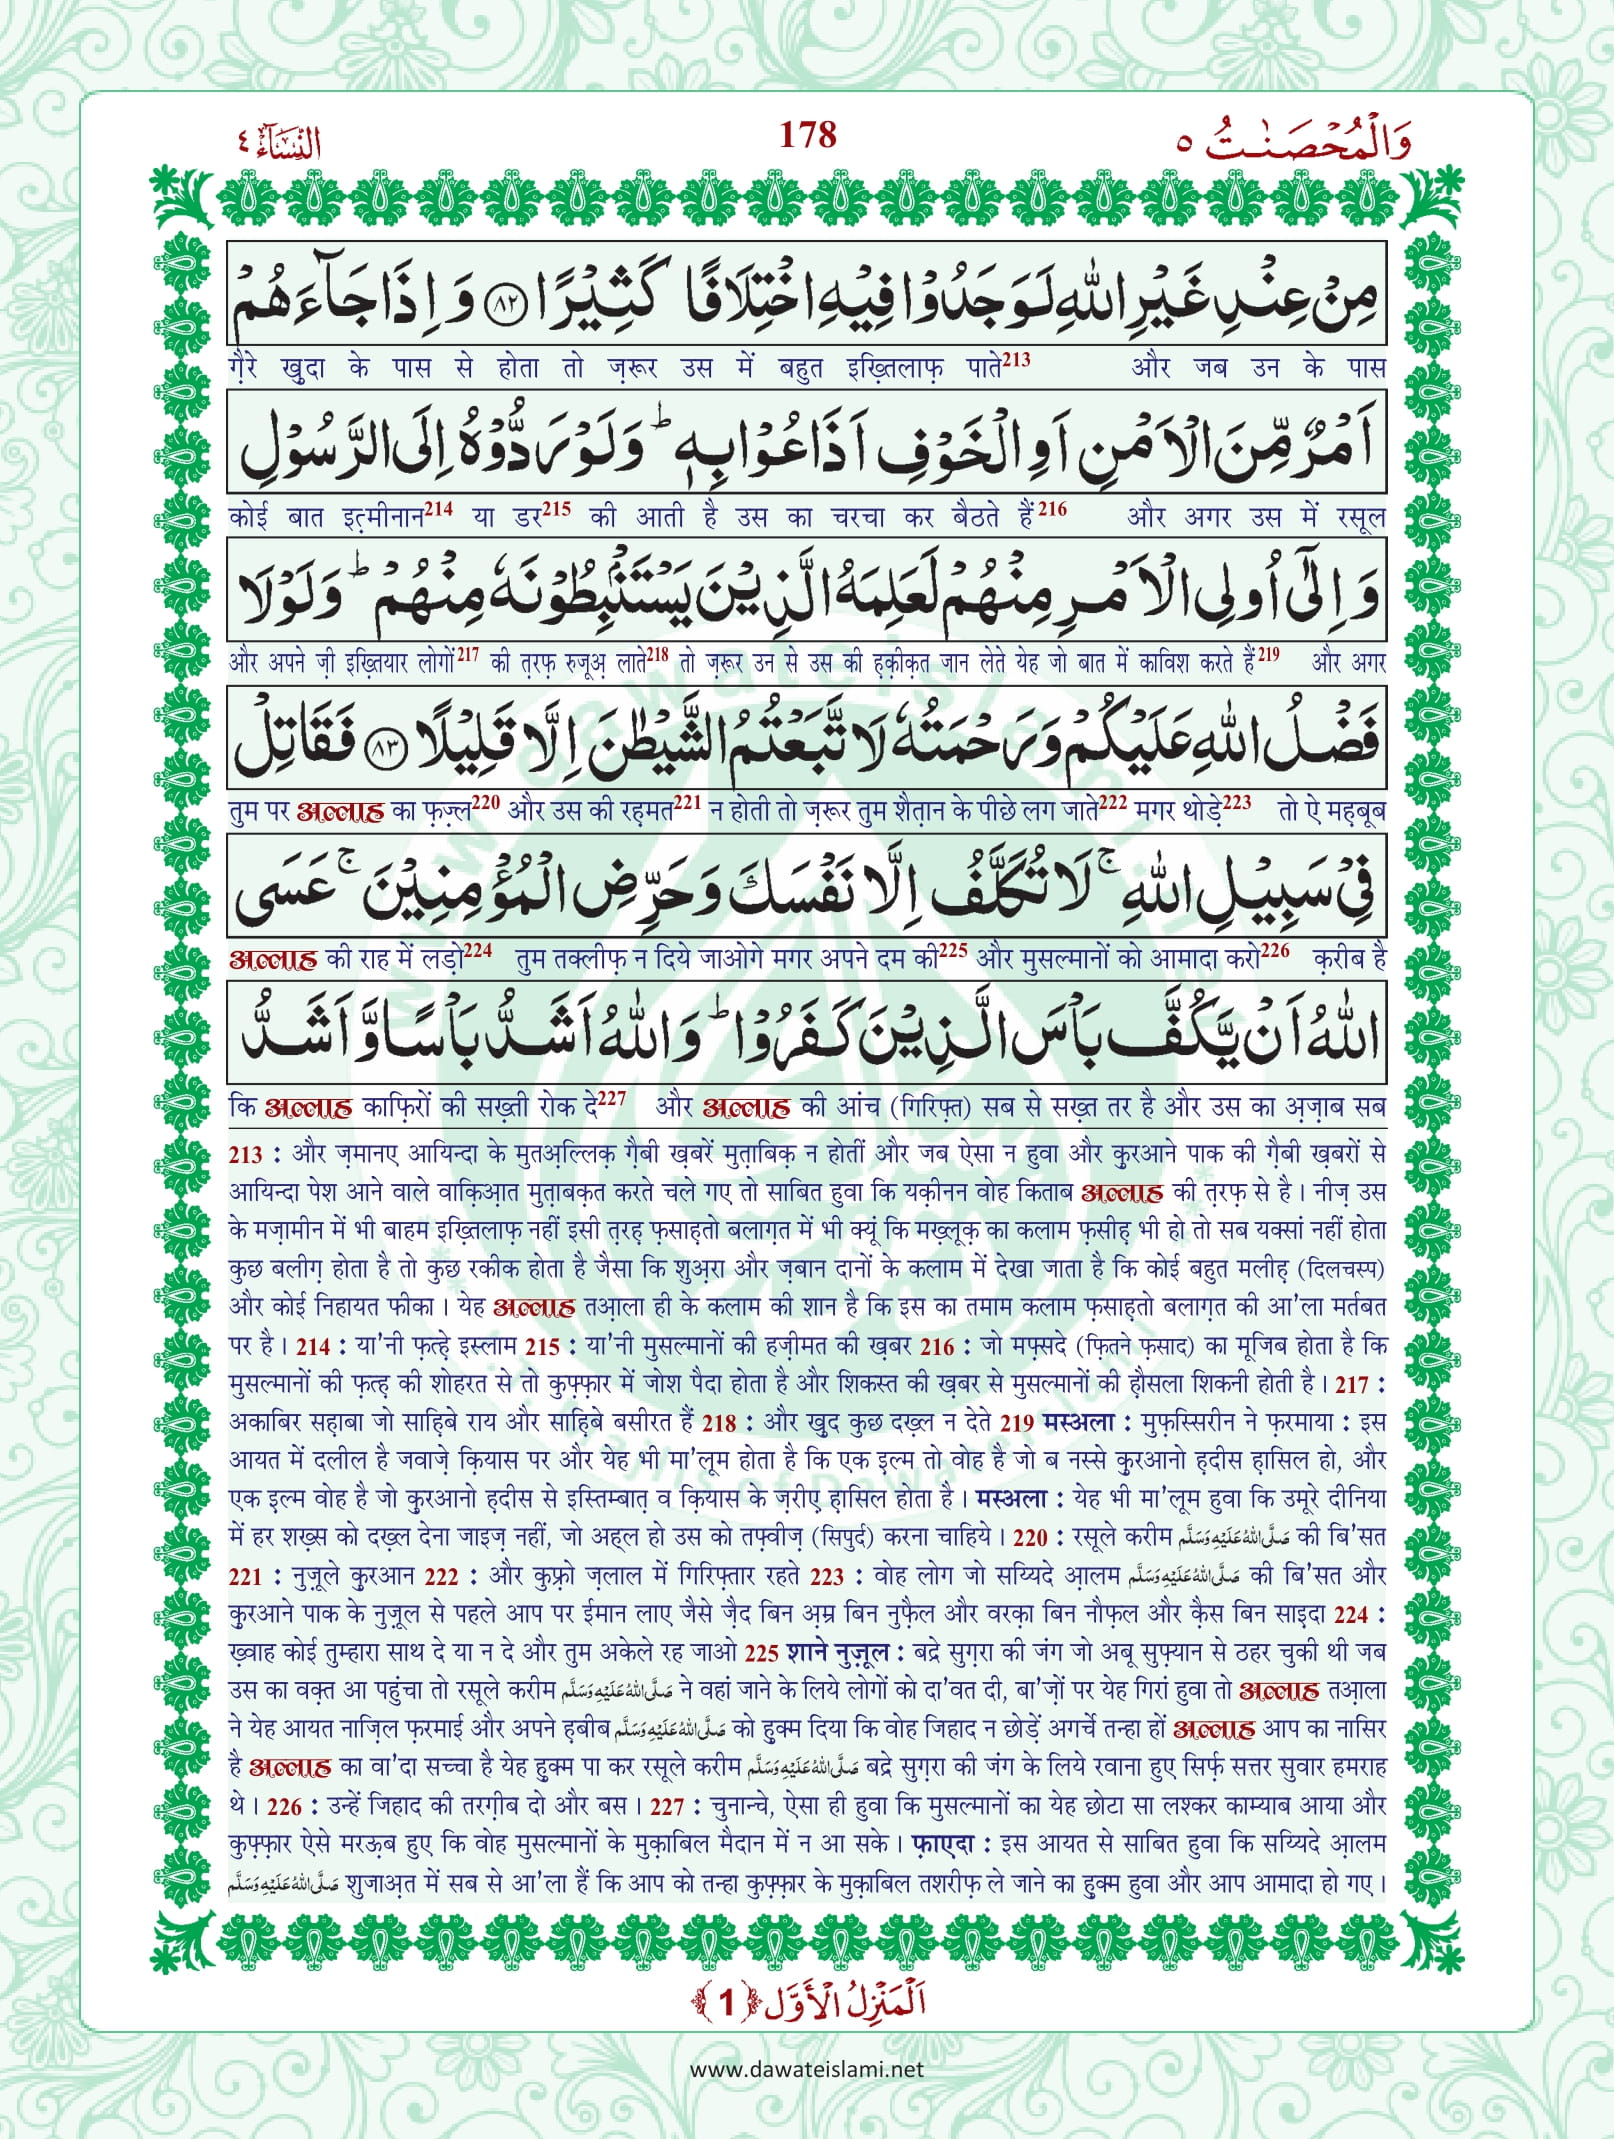 النِّسَآءُ ٤ 178 وَالْمُحْصَنٰتُ ٥
مِنْ عِنْدِ غَيْرِ اللّٰهِ لَوَجَدُوْا فِيْهِ اخْتِلَافًا كَثِيْرًا ﴿٨٢﴾ وَ اِذَا جَآءَهُمْ
ग़ैरे ख़ुदा के पास से होता तो ज़रूर उस में बहुत इख़्तिलाफ़ पाते213 और जब उन के पास
اَمْرٌ مِّنَ الْاَمْنِ اَوِ الْخَوْفِ اَذَاعُوْا بِهٖ ؕ وَ لَوْ رَدُّوْهُ اِلَى الرَّسُوْلِ
कोई बात इत़्मीनान214 या डर215 की आती है उस का चरचा कर बैठते हैं216 और अगर उस में रसूल
وَ اِلٰۤى اُولِی الْاَمْرِ مِنْهُمْ لَعَلِمَهُ الَّذِیْنَ یَسْتَنْۢبِطُوْنَهٗ مِنْهُمْ ؕ وَ لَوْ لَا
और अपने ज़ी इख़्तियार लोगों217 की त़रफ़ रुजूअ़ लाते218 तो ज़रूर उन से उस की ह़क़ीक़त जान लेते येह जो बात में काविश करते हैं219 और अगर
فَضْلُ اللّٰهِ عَلَیْكُمْ وَ رَحْمَتُهٗ لَا تَّبَعْتُمُ الشَّیْطٰنَ اِلَّا قَلِیْلًا ﴿٨٣﴾ فَقَاتِلْ
तुम पर अल्लाह का फ़ज़्ल220 और उस की रहमत221 न होती तो ज़रूर तुम शैत़ान के पीछे लग जाते222 मगर थोड़े223 तो ऐ मह़बूब
فِیْ سَبِیْلِ اللّٰهِ ۚ لَا تُكَلَّفُ اِلَّا نَفْسَكَ وَ حَرِّضِ الْمُؤْمِنِیْنَ ۚ عَسَی
अल्लाह की राह में लड़ो224 तुम तक्लीफ़ न दिये जाओगे मगर अपने दम की225 और मुसल्मानों को आमादा करो226 क़रीब है
اللّٰهُ اَنْ یَّكُفَّ بَاْسَ الَّذِیْنَ كَفَرُوْا ؕ وَ اللّٰهُ اَشَدُّ بَاْسًا وَّ اَشَدُّ
कि अल्लाह काफ़िरों की सख़्ती रोक दे227 और अल्लाह की आंच (गिरिफ़्त) सब से सख़्त तर है और उस का अ़ज़ाब सब
213 : और ज़मानए आयिन्दा के मुतअ़ल्लिक़ ग़ैबी ख़बरें मुत़ाबिक़ न होतीं और जब ऐसा न हुवा और क़ुरआने पाक की ग़ैबी ख़बरों से
आयिन्दा पेश आने वाले वाक़िआ़त मुत़ाबक़त करते चले गए तो साबित हुवा कि यक़ीनन वोह किताब अल्लाह की त़रफ़ से है। नीज़ उस
के मज़ामीन में भी बाहम इख़्तिलाफ़ नहीं इसी त़रह़ फ़साह़तो बलाग़त में भी क्यूं कि मख़्लूक़ का कलाम फ़सीह़ भी हो तो सब यक्सां नहीं होता
कुछ बलीग़ होता है तो कुछ रकीक होता है जैसा कि शुअ़रा और ज़बान दानों के कलाम में देखा जाता है कि कोई बहुत मलीह़ (दिलचस्प)
और कोई निहायत फीका। येह अल्लाह तआ़ला ही के कलाम की शान है कि इस का तमाम कलाम फ़साह़तो बलाग़त की आ'ला मर्तबत
पर है। 214 : या'नी फ़त्ह़े इस्लाम 215 : या'नी मुसल्मानों की हज़ीमत की ख़बर 216 : जो मफ़्सदे (फ़ितने फ़साद) का मूजिब होता है कि
मुसल्मानों की फ़त्ह़ की शोहरत से तो कुफ़्फ़ार में जोश पैदा होता है और शिकस्त की ख़बर से मुसल्मानों की ह़ौसला शिकनी होती है। 217 :
अकाबिर सह़ाबा जो साह़िबे राय और साह़िबे बसीरत हैं 218 : और ख़ुद कुछ दख़्ल न देते 219 मस्अला : मुफ़स्सिरीन ने फ़रमाया : इस
आयत में दलील है जवाज़े क़ियास पर और येह भी मा'लूम होता है कि एक इल्म तो वोह है जो ब नस्से क़ुरआनो ह़दीस ह़ासिल हो, और
एक इल्म वोह है जो क़ुरआनो ह़दीस से इस्तिम्बात़ व क़ियास के ज़रीए ह़ासिल होता है। मस्अला : येह भी मा'लूम हुवा कि उमूरे दीनिया
में हर शख़्स को दख़्ल देना जाइज़ नहीं, जो अह्ल हो उस को तफ़्वीज़ (सिपुर्द) करना चाहिये। 220 : रसूले करीम صَلَّى اللهُ عَلَيْهِ وَسَلَّم की बि'सत
221 : नुज़ूले क़ुरआन 222 : और कुफ़्रो ज़लाल में गिरिफ़्तार रहते 223 : वोह लोग जो सय्यिदे आ़लम صَلَّى اللهُ عَلَيْهِ وَسَلَّم की बि'सत और
क़ुरआने पाक के नुज़ूल से पहले आप पर ईमान लाए जैसे ज़ैद बिन अ़म्र बिन नुफ़ैल और वरक़ा बिन नौफ़ल और क़ैस बिन साइ़दा 224 :
ख़्वाह कोई तुम्हारा साथ दे या न दे और तुम अकेले रह जाओ 225 शाने नुज़ूल : बद्रे सुग़रा की जंग जो अबू सुफ़्यान से ठहर चुकी थी जब
उस का वक़्त आ पहुंचा तो रसूले करीम صَلَّى اللهُ عَلَيْهِ وَسَلَّم ने वहां जाने के लिये लोगों को दा'वत दी, बा'ज़ों पर येह गिरां हुवा तो अल्लाह तआ़ला
ने येह आयत नाज़िल फ़रमाई और अपने ह़बीब صَلَّى اللهُ عَلَيْهِ وَسَلَّم को हुक्म दिया कि वोह जिहाद न छोड़ें अगर्चे तन्हा हों अल्लाह आप का नासिर
है अल्लाह का वा'दा सच्चा है येह हुक्म पा कर रसूले करीम صَلَّى اللهُ عَلَيْهِ وَسَلَّم बद्रे सुग़रा की जंग के लिये रवाना हुए सिर्फ़ सत्तर सुवार हमराह
थे। 226 : उन्हें जिहाद की तरग़ीब दो और बस। 227 : चुनान्चे, ऐसा ही हुवा कि मुसल्मानों का येह छोटा सा लश्कर काम्याब आया और
कुफ़्फ़ार ऐसे मरऊ़ब हुए कि वोह मुसल्मानों के मुक़ाबिल मैदान में न आ सके। फ़ाएदा : इस आयत से साबित हुवा कि सय्यिदे आ़लम
صَلَّى اللهُ عَلَيْهِ وَسَلَّم शुजाअ़त में सब से आ'ला हैं कि आप को तन्हा कुफ़्फ़ार के मुक़ाबिल तशरीफ़ ले जाने का हुक्म हुवा और आप आमादा हो गए।
اَلْمَنْزِلُ الْاَوَّل ﴿1﴾
www.dawateislami.net